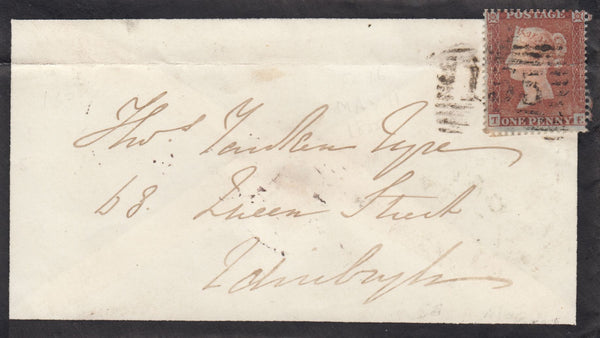 POSTAGE
T F
ONE PENNY
Thos
68. Queen Street
Edinburgh